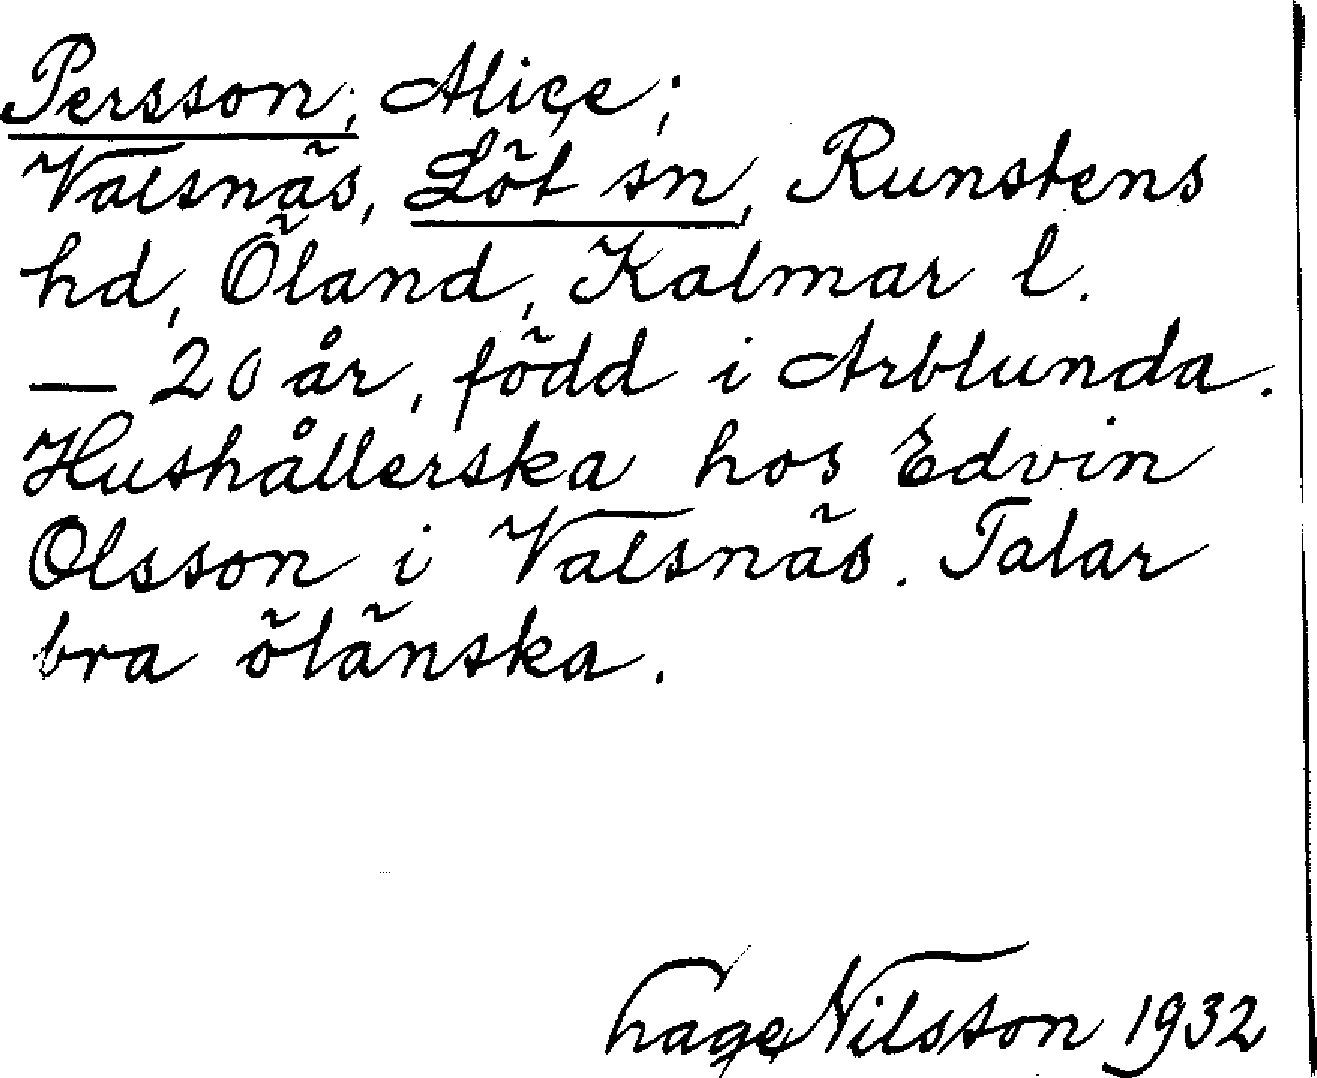 Persson, Alice;
Valsnäs, Löt sn, Runstens
hd, Öland, Kalmar l.
— 20 år, född i Arblunda.
Hushållerska hos Edvin
Olsson i Valsnäs. Talar
bra öländska.
Nilsson 1932